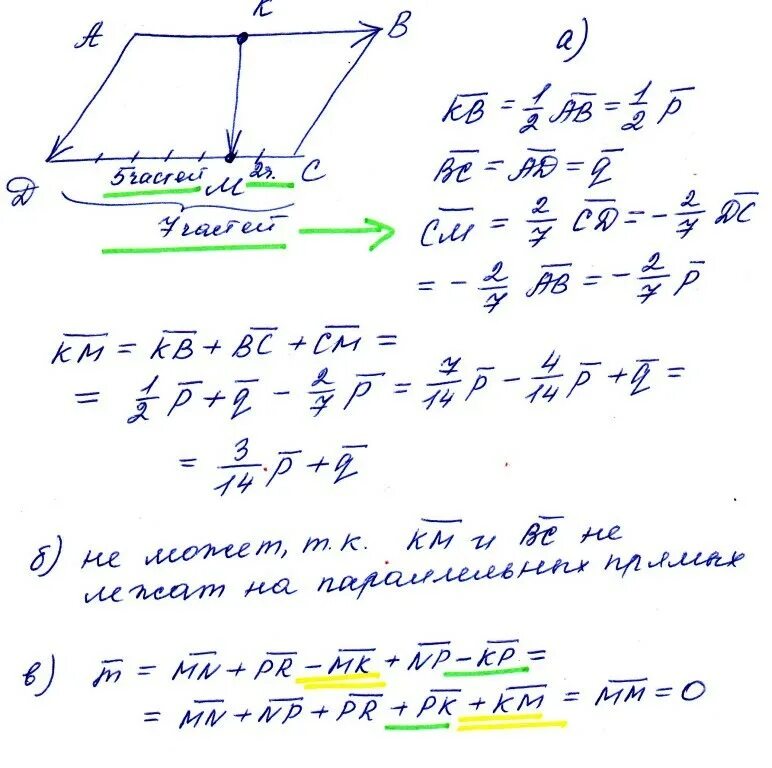 K
A B
а)
5 частей M 2ч. C
D
7 частей
K̅B̅ = 1/2 A̅B̅ = 1/2 p̅
B̅C̅ = A̅D̅ = q̅
C̅M̅ = 2/7 C̅D̅ = - 2/7 D̅C̅
= - 2/7 A̅B̅ = - 2/7 p̅
K̅M̅ = K̅B̅ + B̅C̅ + C̅M̅ =
= 1/2 p̅ + q̅ - 2/7 p̅ = 7/14 p̅ - 4/14 p̅ + q̅ =
= 3/14 p̅ + q̅
б) не может, т.к. K̅M̅ и B̅C̅ не
лежат на параллельных прямых
в) m̅ = M̅N̅ + P̅R̅ - M̅K̅ + N̅P̅ - K̅P̅ =
= M̅N̅ + N̅P̅ + P̅R̅ + P̅K̅ + K̅M̅ = M̅M̅ = 0